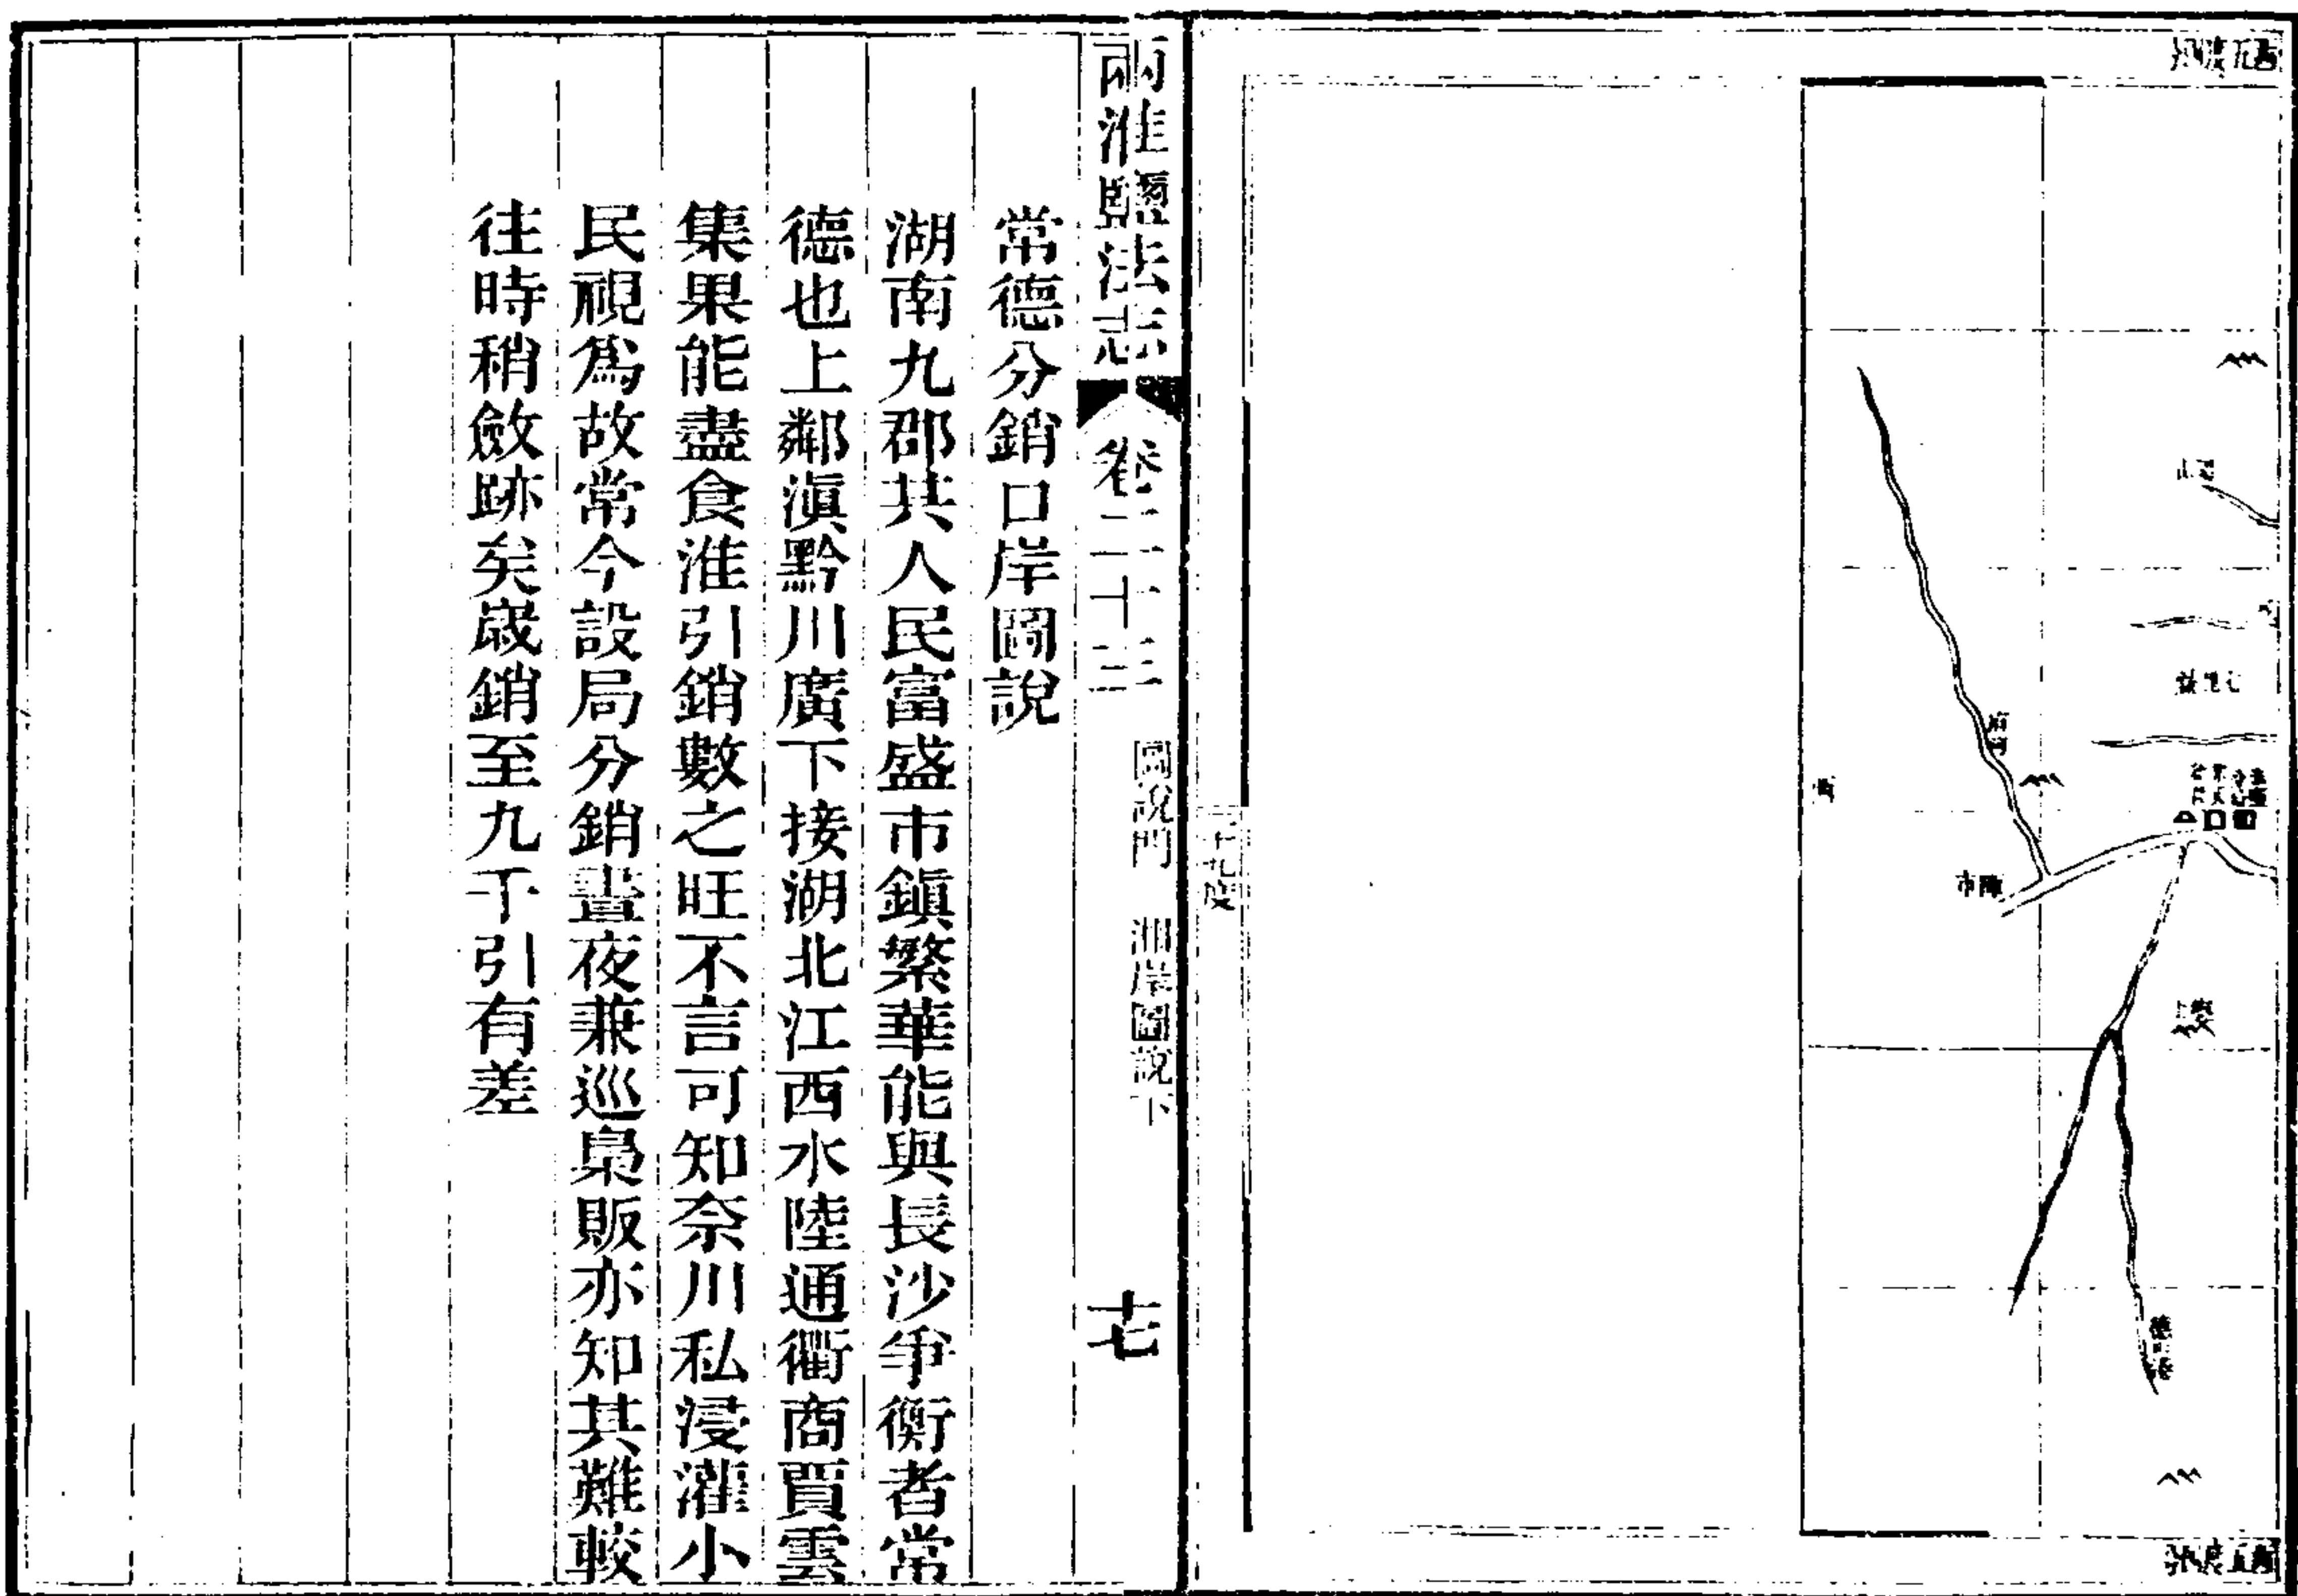 石門
西
陬市
德山港
二十九度
兩淮鹽法志
卷二十三
圖說門
湘岸圖說下
十七
常德分銷口岸圖說
湖南九郡其人民富盛市鎮繁華能與長沙爭衡者常
德也上鄰滇黔川廣下接湖北江西水陸通衢商賈雲
集果能盡食淮引銷數之旺不言可知奈川私浸灌小
民視爲故常今設局分銷晝夜兼巡梟販亦知其難較
往時稍斂跡矣歲銷至九千引有差